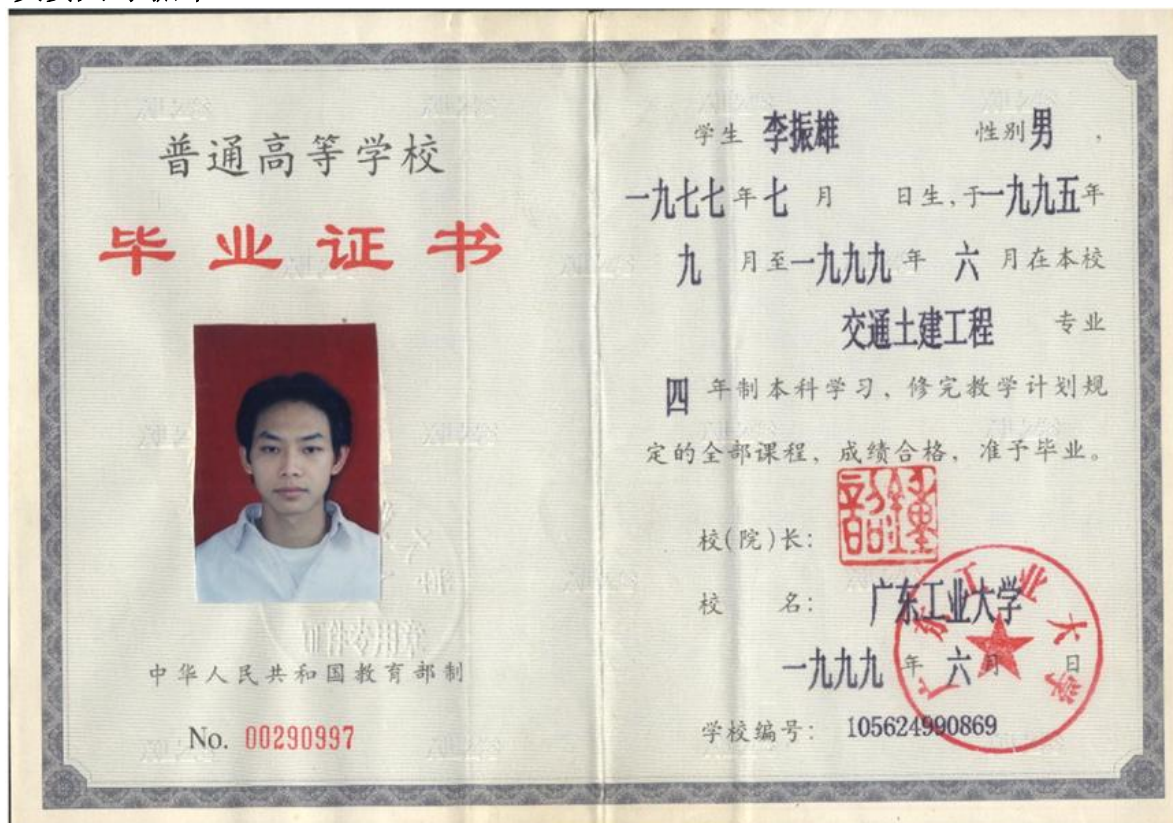 普通高等学校
毕业证书
中华人民共和国教育部制
No. 00290997
学生 李振雄 性别 男 ,
一九七七年七月 日生,于一九九五年
九 月至一九九九年 六 月在本校
交通土建工程 专业
四 年制本科学习, 修完教学计划规
定的全部课程, 成绩合格, 准予毕业。
校(院)长:
校 名: 广东工业大学
广东工业大学
一九九九年 六月 日
学校编号: 105624990869